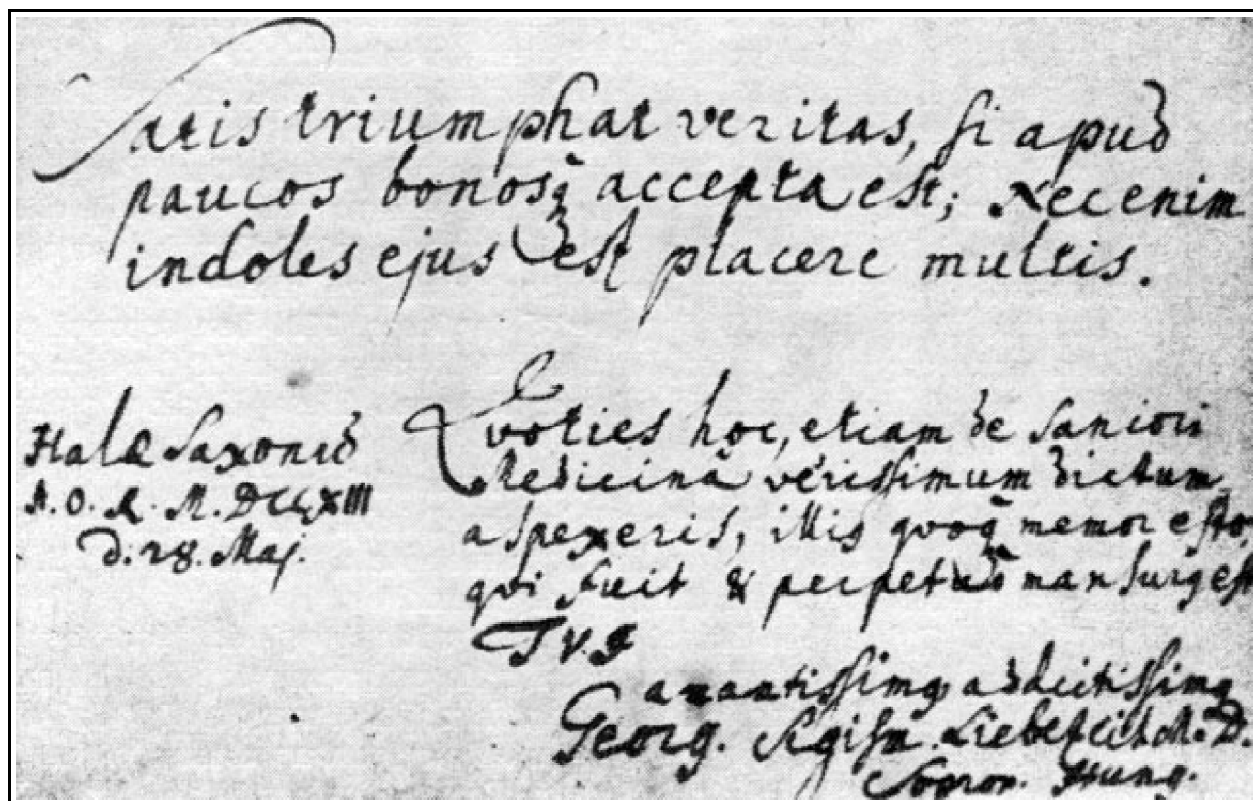 Satis triumphat veritas, si apud
paucos bonosq̃ accepta est; Nec enim
indoles ejus est placere multis.
Halæ Saxonũ
A. O. R. M. DCCXIII
d. 28. Maj.
Quoties hoc, etiam de saniori
Medicinâ verissimum dictum
aspexeris, illis quoq̃ memor esto,
qui fuit & perpetuò mansurq est
TVI
amantissimq addictissimq
Georg. Sigism. Liebezeit M. D.
Sopron. Hung.